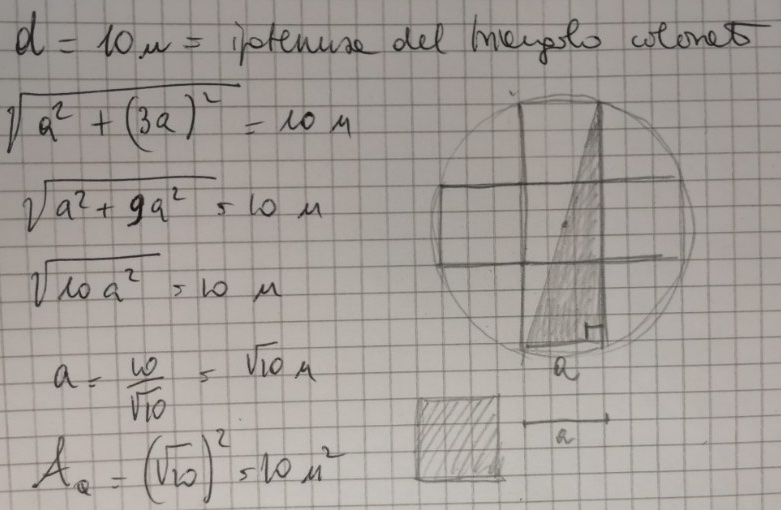 d = 10 u = ipotenusa del triangolo colorato
√(a² + (3a)²) = 10 u
√(a² + 9a²) = 10 u
√(10a²) = 10 u
a = 10/√10 = √10 u
a
a
A_Q = (√10)² = 10 u²